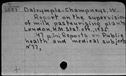 Dalrymple-Champneys, W.
Report on the supervision
of milk pasteurising plants
London, H.M. Stat. Off. 1935.
47 p. (Reports on Public
health and medical subjects
N°77,